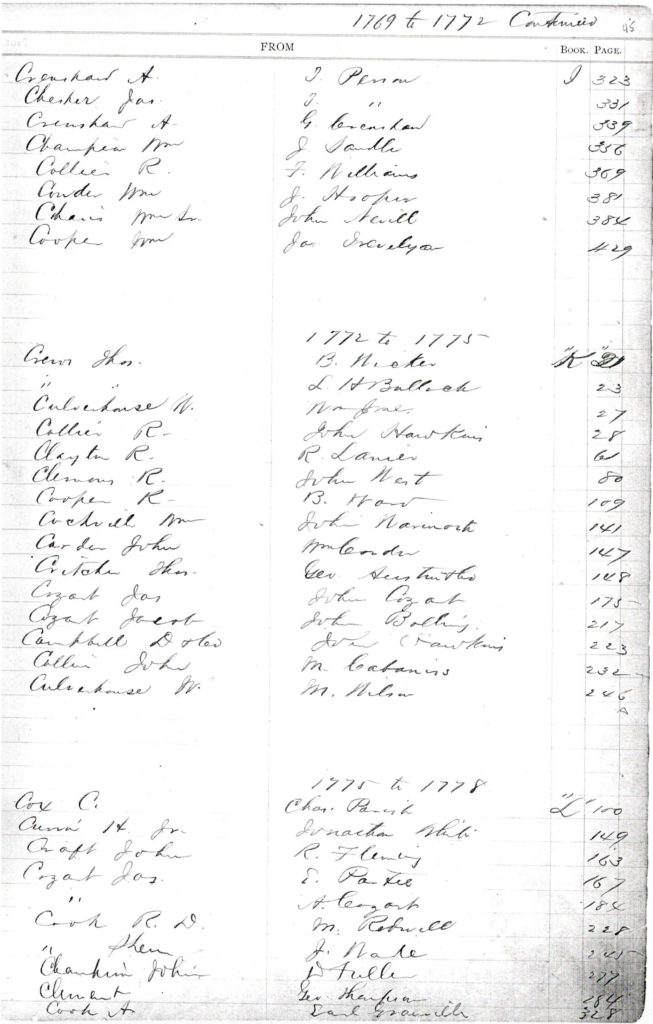 1769 to 1772 Continued 45
FROM BOOK. PAGE.
Crenshaw A. T. Person I 323
Chesher Jas T. " 331
Crenshaw A. G. Crenshaw 339
Champion Wm J. 356
Collier R. F. Williams 369
Conder Wm J. Hooper 381
Wm Sr. John Nevill 384
Cooper Wm Jas Trevelyan 429
1772 to 1775
Crews Thos. B. Hicker "K" 21
" " L. H Bullock 23
Culverhouse W. Wm Jones 27
Collier R. John Hawkins 28
Clayton R. R. Lanier 61
Clemons R. John West 80
Cooper K B. Ward 109
Cockrell Wm John 141
Carder John Wm Conder 147
Critcher Thos. Geo. 148
Cozart Jas John Cozart 175
Cozart Jacob John Bolling 217
Campbell D & Co John Hawkins 223
Collin John M. Cabaniss 232
Culverhouse W. M. Wilson 246
1775 to 1778
Cox C. Chas. Parish "L" 100
H. Jr. Jonathan White 149
Craft John R. Fleming 163
Cozart Jas. E. 167
" A. Cozart 184
Cook R. D. M. 228
" Shem J. Wade 245
John D Fuller 277
Clement Geo Thompson 284
Cook A. Earl Granville 328